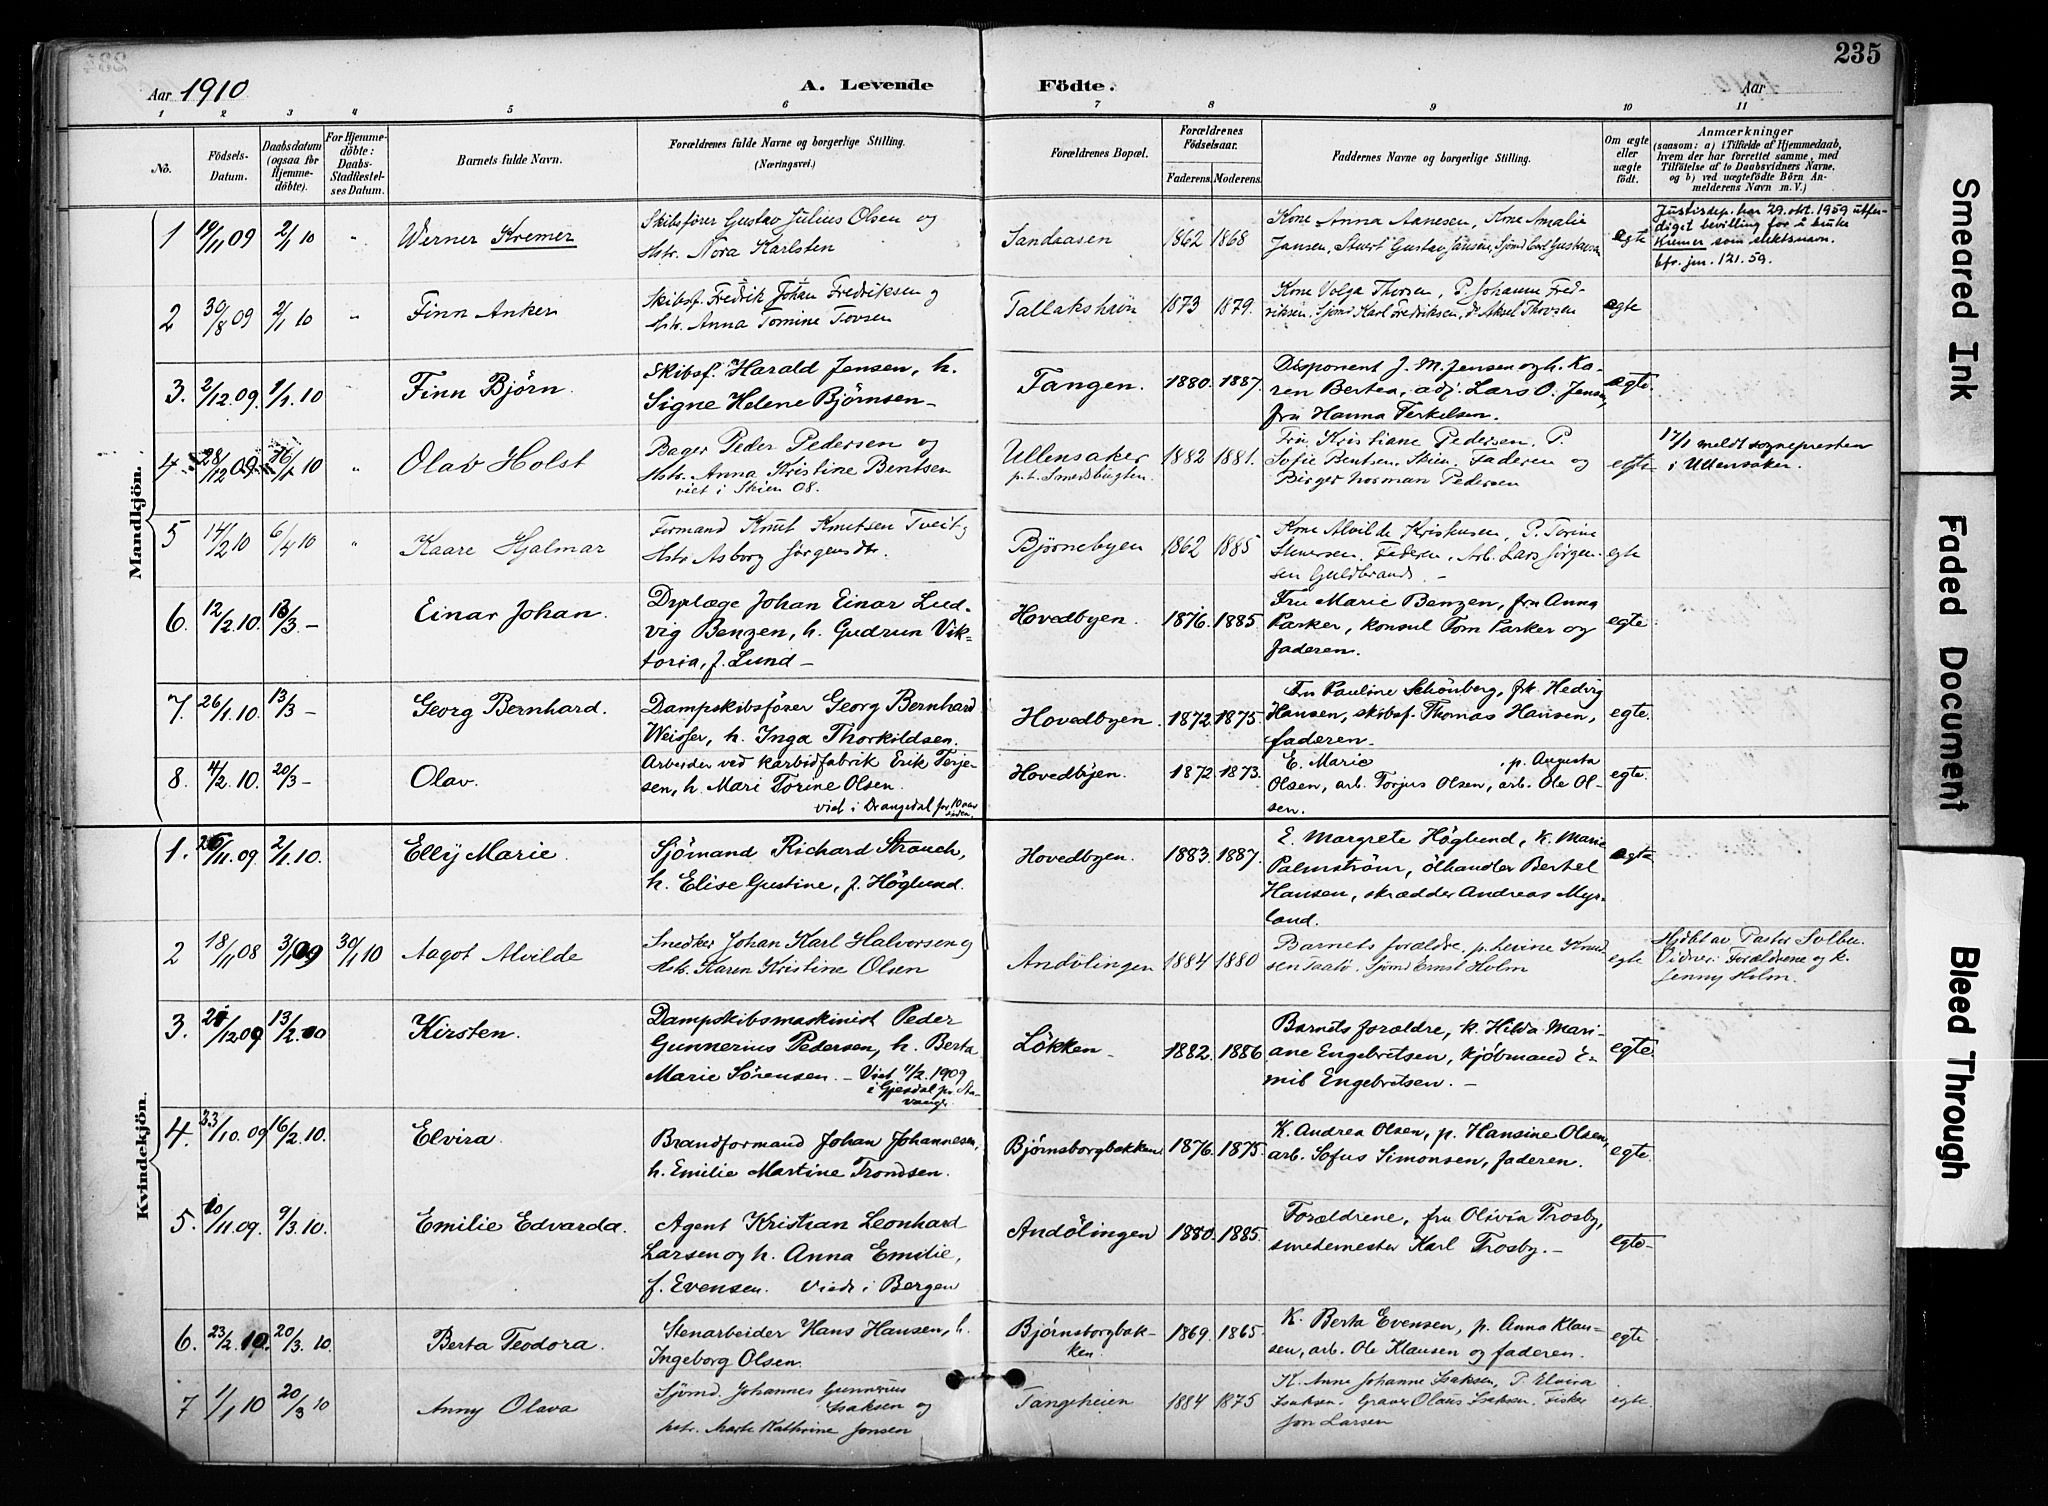 235
Aar 1910
A. Levende Födte.
Aar
1 2 3 4 5 6 7 8 9 10 11
No.
Födsels-Datum.
Daabsdatum (ogsaa for Hjemme-döbte).
For Hjemme-döbte: Daabs-Stadfæstel-ses Datum.
Barnets fulde Navn.
Forældrenes fulde Navne og borgerlige Stilling. (Næringsvei.)
Forældrenes Bopæl.
Forældrenes Födselsaar.
Faderens. Moderens.
Faddernes Navne og borgerlige Stilling.
Om ægte eller uægte födt.
Anmærkninger
(saasom: a) i Tilfælde af Hjemmedaab, hvem der har forrettet samme, med Tilföielse af to Daabsvidners Navne, og b) ved uægtefödte Börn An-melderens Navn m. V.)
Mandkjön.
1 19/11 09 2/1 10 " Werner Kremer
Skibsfører Gustav Julius Olsen og
Hstr. Nora Karlsten
Sandaasen 1862 1868
Kone Anna Aanesen, Kone Amalie
Jansen, Stuert Gustav Jansen, Sjömd Carl Gustavsen
egte
Justisdep. har 29. okt. 1959 utfer-
diget bevilling for å bruke
Kremer som slektsnavn.
bfr. jnr. 121.59.
2 30/8 09 2/1 10 " Finn Anker
Skibsf. Fredrik Johan Fredriksen og
Hstr. Anna Tomine Tovsen
1873 1879.
Kone Volga Thorsen, P. Johanne Fred-
riksen, Sjömd Karl Fredriksen, do Aksel Thovsen
egte
3. 2/12.09. 1/1.10 Finn Björn.
Skibsf. Harald Jensen, h.
Signe Helene Björnsen -
Tangen. 1880. 1887.
Disponent J. M. Jensen og h. Ka-
ren Bertea, adj. Lars O. Jensen,
fru Hanna Terkelsen.
ægte.
4. 28/12 09 10 " Olav Holst
Bager Peder Pedersen og
Hstr. Anna Kristine Bentsen
viet i Skien 08.
Ullensaker
p.t. Smedsbugten.
1882 1881.
Fru Kristiane Pedersen, P.
Sofie Bentsen Skien. Faderen og
Birger Norman Pedersen
egte
17/1 meldt sognepresten
i Ullensaker.
5 14/2 10 6/4 10 " Kaare Hjalmar
Formand Knut Knutsen Tveit og
Hstr Asborg Jørgensdtr.
Björnebyen 1862 1885
Kone Alvilde Kristensen, P. Torine
Stenersen. Faderen, Arb. Lars Jørgen-
sen Guldbrands. -
egte
6. 12/2.10. 13/3 - Einar Johan.
Dyrlæge Johan Einar Lud-
vig Benzen, h. Gudrun Vik-
toria, f. Lund -
Hovedbyen. 1876. 1885.
Fru Marie Benzen, fru Anna
Parker, konsul Tom Parker og
faderen.
egte.
7. 26/1.10. 13/3 - Georg Bernhard.
Dampskibsförer Georg Bernhard
Weisser, h. Inga Thorkildsen.
Hovedbyen. 1872. 1875.
Fru Pauline Schönberg, frk. Hedvig
Hansen, skibsf. Thomas Hansen,
faderen.
egte.
8. 4/2.10. 20/3 - Olav.
Arbeider ved karbidfabrik Erik Terje-
sen, h. Mari Torine Olsen.
viet i Drangedal for 10 aar
siden.
Hovedbyen. 1872. 1873.
E. Marie p. Augusta
Olsen, arb. Torjus Olsen, arb. Ole Ol-
sen.
egte.
Kvindekjön.
1. 11.09. 2/1.10. Elly Marie.
Sjömand Richard Strauch,
h. Elise Gustine, f. Höglund.
Hovedbyen. 1883. 1887.
E. Margrete Höglund, K. Marie
Palmström, ölhandler Bertel
Hansen, skrædder Andreas Myr-
land.
egte
2 18/11 08 3/1 09 30/1 10 Aagot Alvilde
Snedker Johan Karl Halvorsen og
Hstr. Karen Kristine Olsen
Andölingen 1884 1880
Barnets forældre, p. Levine Knud
sen Taatö. Sjömd Ernst Holm
egte
Hjdbt av Pastor Solbu.
Vidner: Forældrene og k.
Jenny Holm.
3. 12.09 13/2.10 Kirsten.
Dampskibsmaskinist Peder
Gunnerius Pedersen, h. Berta
Marie Sörensen. - Viet 1/2.1909
i Gjesdal pr. Sta-
vanger.
Lökken - 1882. 1886
Barnets forældre, K. Hilda Mari-
ane Engebretsen, kjöbmand E-
mil Engebretsen. -
egte.
4. 23/10.09 16/2.10. Elvira.
Brandformand Johan Johannesen,
h. Emilie Martine Trondsen.
Björnsborgbakken 1876. 1875.
K. Andrea Olsen, p. Hansine Olsen,
arb. Sofus Simonsen, faderen.
egte.
5. 10/11.09. 9/3.10. Emilie Edvarda.
Agent Kristian Leonhard
Larsen og h. Anna Emilie,
f. Evensen. Viede i Bergen
Andölingen 1880. 1885.
Forældrene, fru Olivia Trosby,
smedemester Karl Trosby. -
egte
6. 23/2.10. 20/3.10. Berta Teodora.
Stenarbeider Hans Hansen, h.
Ingeborg Olsen.
Björnsborgbak-
ken.
1869. 1865.
K. Berta Evensen, p. Anna Klau-
sen, arb. Ole Klausen og faderen.
egte
7 1/1 10 20/3 10 Anny Olava
Sjömd. Johannes Gunnerius
Isaksen og
hstr. Marte Kathrine Jonsen
Tangeheien 1884 1875
K. Anne Johanne Isaksen, P. Elvira
Isaksen, Graver Olaus Isaksen. Fisker
Jon Larsen
egte
Smeared Ink
Faded Document
Bleed Through